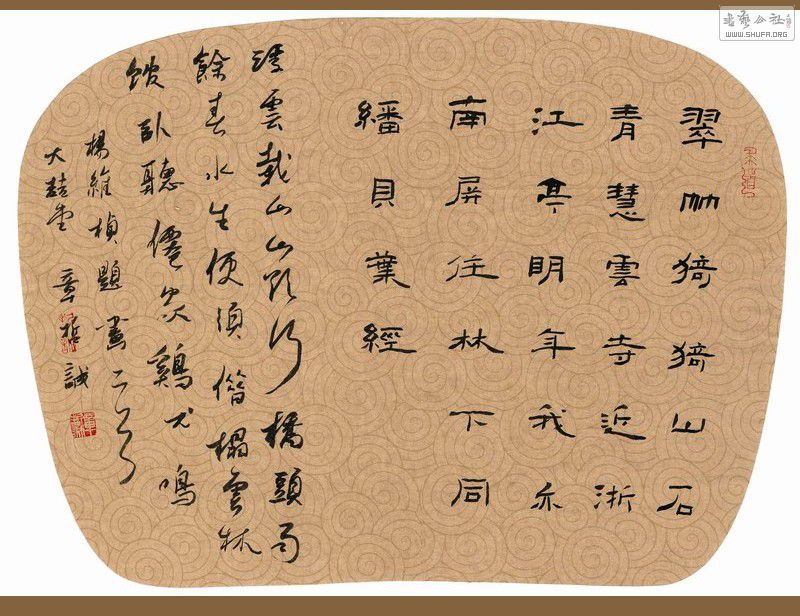 翠竹猗猗山石
青慧雲寺近浙
江亭明年我亦
南屏住林下同
繙貝葉經
浮雲載山山欲行橋頭雨
餘春水生便須借榻雲林
館臥聽僊家鷄犬鳴
楊維楨題畫二首
書藝公社
WWW.SHUFA.ORG